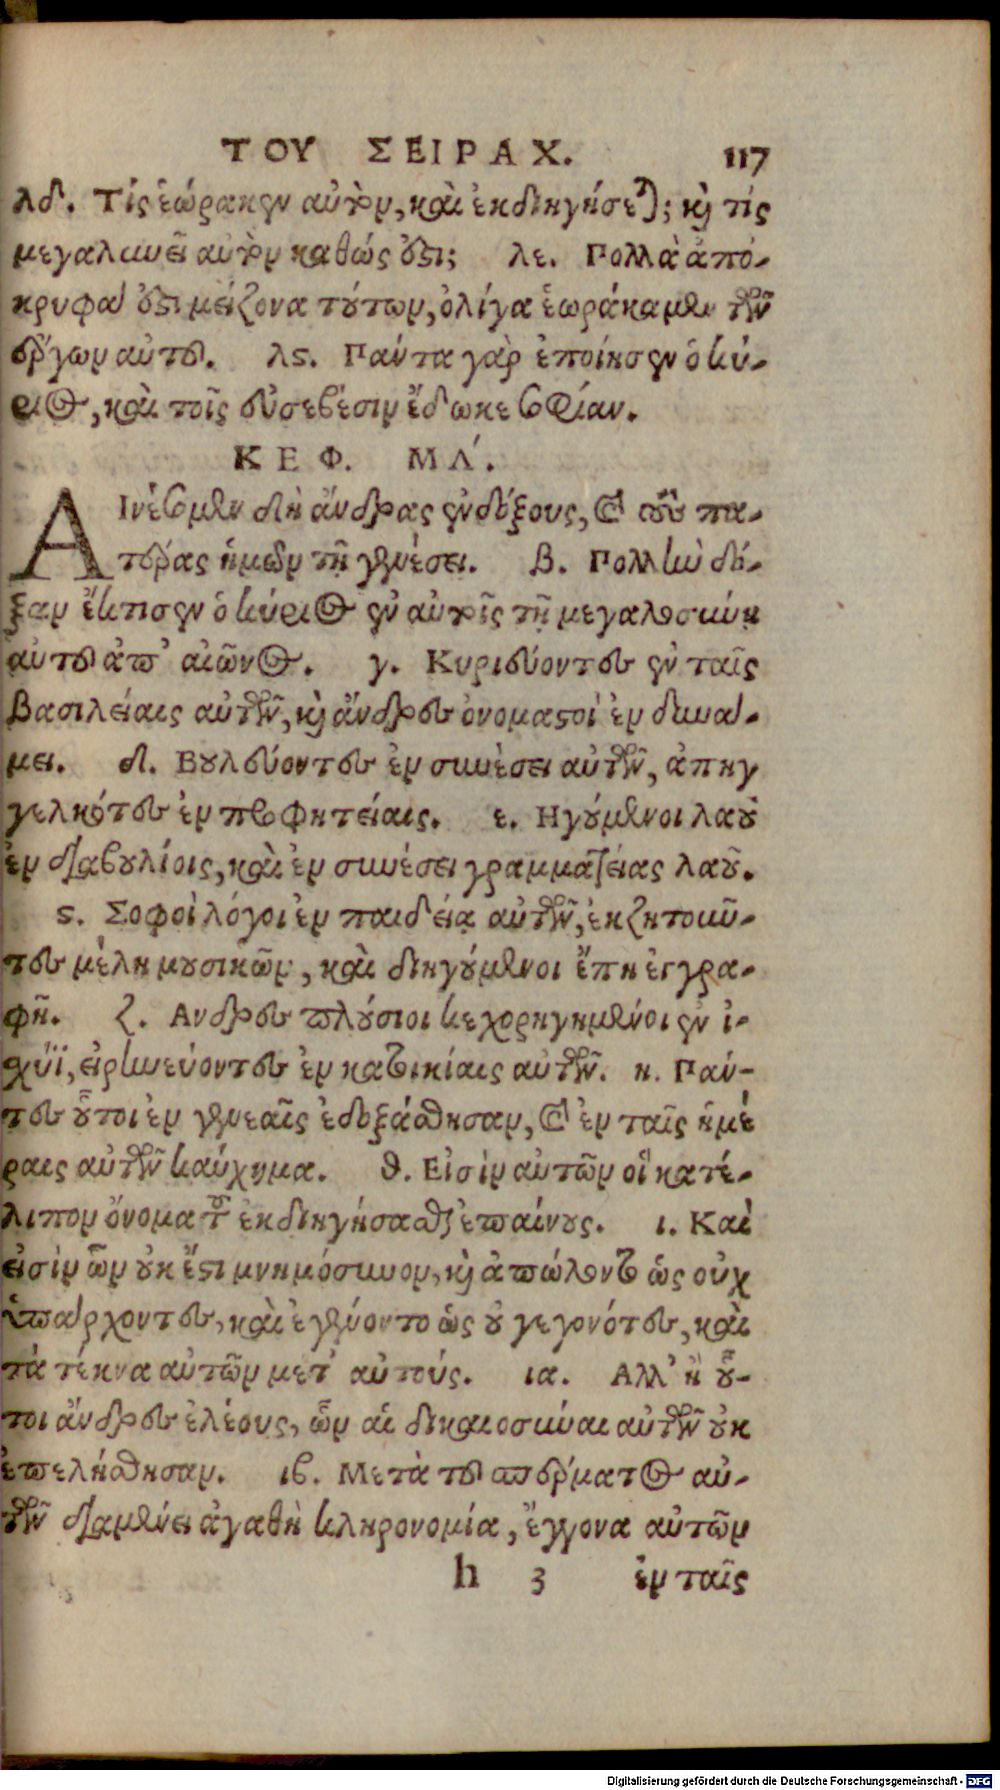 ΤΟΥ ΣΕΙΡΑΧ. 117
λδ. Τίς ἑώρακεν αὐτὸν, καὶ ἐκδιηγήσεται; καὶ τίς
μεγαλυνεῖ αὐτὸν καθώς ἐστι; λε. Πολλὰ ἀπό-
κρυφά ἐστι μείζονα τούτων, ὀλίγα ἑωράκαμεν τῶν
ἔργων αὐτοῦ. λϛ. Πάντα γὰρ ἐποίησεν ὁ κύ-
ριος, καὶ τοῖς εὐσεβέσιν ἔδωκε σοφίαν.
ΚΕΦ. ΜΔ΄.
ΑΙνέσωμεν δὴ ἄνδρας ἐνδόξους, καὶ τοὺς πα-
τέρας ἡμῶν τῇ γενέσει. β. Πολλὴν δό-
ξαν ἔκτισεν ὁ κύριος ἐν αὐτοῖς τῇ μεγαλοσύνῃ
αὐτοῦ ἀπ' αἰῶνος. γ. Κυριεύοντες ἐν ταῖς
βασιλείαις αὐτῶν, καὶ ἄνδρες ὀνομαστοὶ ἐν δυνά-
μει. δ. Βουλεύοντες ἐν συνέσει αὐτῶν, ἀπηγ
γελκότες ἐν προφητείαις. ε. Ηγούμενοι λαοῦ
ἐν διαβουλίοις, καὶ ἐν συνέσει γραμματείας λαοῦ.
ϛ. Σοφοὶ λόγοι ἐν παιδείᾳ αὐτῶν, ἐκζητοῦν-
τες μέλη μουσικῶν, καὶ διηγούμενοι ἔπη ἐγ γρα-
φῇ. ζ. Ανδρες πλούσιοι κεχορηγημένοι ἐν ἰ-
σχύϊ, εἰρηνεύοντες ἐν κατοικίαις αὐτῶν. η. Πάν-
τες οὗτοι ἐν γενεαῖς ἐδοξάσθησαν, καὶ ἐν ταῖς ἡμέ
ραις αὐτῶν καύχημα. θ. Εἰσὶν αὐτῶν οἳ κατέ-
λιπον ὄνομα τοῦ ἐκδιηγήσασθαι ἐπαίνους. ι. Καὶ
εἰσὶν ὧν οὐκ ἔστι μνημόσυνον, καὶ ἀπώλοντο ὡς οὐχ
ὑπάρχοντες, καὶ ἐγένοντο ὡς οὐ γεγονότες, καὶ
τὰ τέκνα αὐτῶν μετ' αὐτούς. ια. Αλλ' ἢ οὗ-
τοι ἄνδρες ἐλέους, ὧν αἱ δικαιοσύναι αὐτῶν οὐκ
ἐπελήσθησαν. ιβ. Μετὰ τοῦ σπέρματος αὐ-
τῶν διαμένει ἀγαθὴ κληρονομία, ἔγγονα αὐτῶν
h 3 ἐν ταῖς
Digitalisierung gefördert durch die Deutsche Forschungsgemeinschaft - DFG